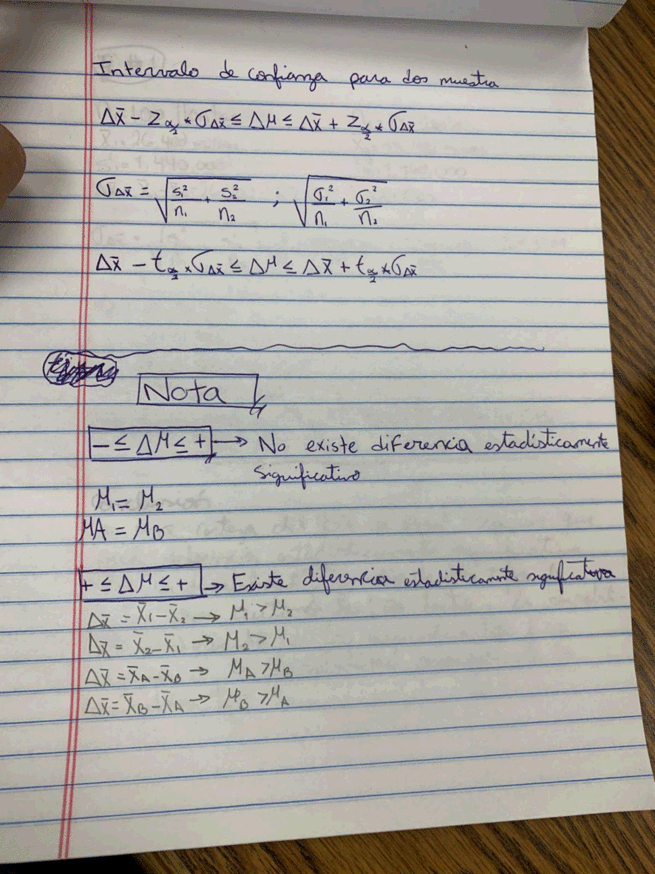 Intervalo de confianza para dos muestra
Δx̄ - Z α/2 * σΔx̄ ≤ ΔM ≤ Δx̄ + Z α/2 * σΔx̄
σΔx̄ = √(s₁²/n₁ + s₂²/n₂) ; √(σ₁²/n₁ + σ₂²/n₂)
Δx̄ - t α/2 * σΔx̄ ≤ ΔM ≤ Δx̄ + t α/2 * σΔx̄
Nota
- ≤ ΔM ≤ + → No existe diferencia estadísticamente
significativo
M₁ = M₂
MA = MB
+ ≤ ΔM ≤ + → Existe diferencia estadísticamente significativa
Δx̄ = x̄₁ - x̄₂ → M₁ > M₂
Δx̄ = x̄₂ - x̄₁ → M₂ > M₁
Δx̄ = x̄A - x̄B → MA > MB
Δx̄ = x̄B - x̄A → MB > MA